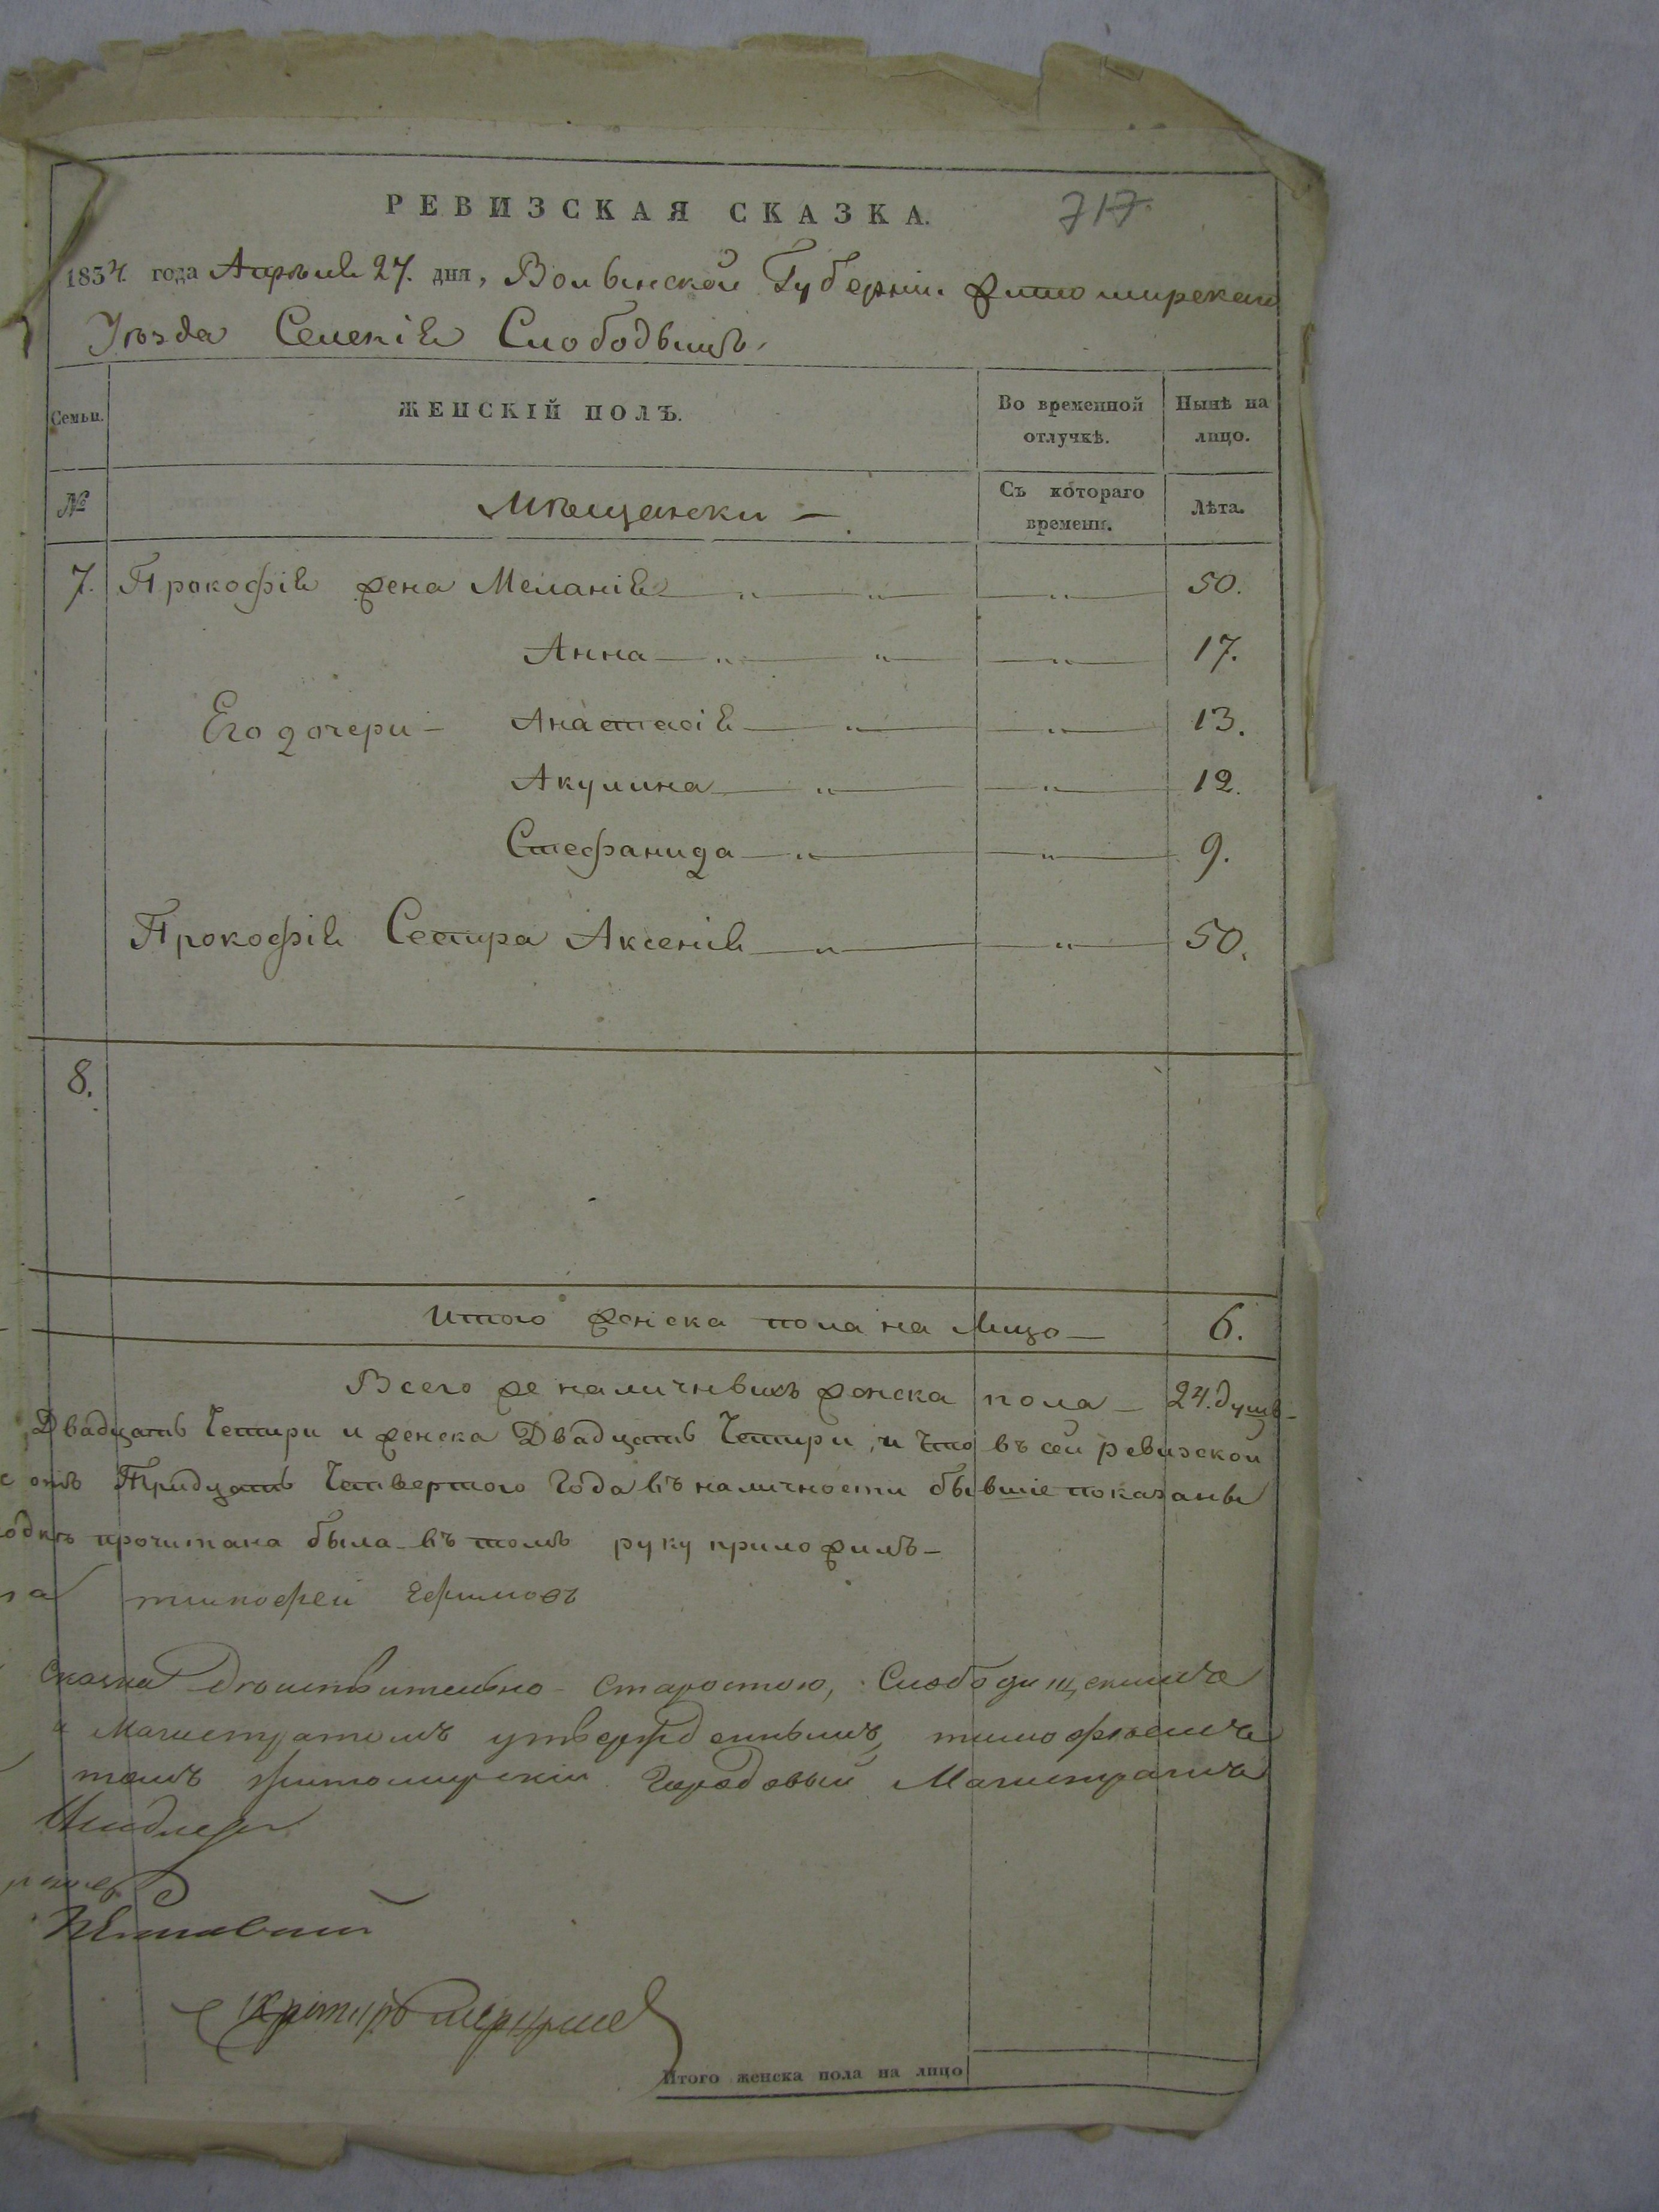 РЕВИЗСКАЯ СКАЗКА.
717
1834. года Апрѣля 27. дня, Волынской Губерніи Житомирскаго
Уѣзда Селенія
Семьи.
ЖЕНСКІЙ ПОЛЪ.
Во временной отлучкѣ.
Нынѣ на лицо.
№
Мѣщански —
Съ котораго времени.
Лѣта.
7. Прокофія жена Меланія — „ — „ — „ — 50.
Анна — „ — „ — „ — 17.
Его дочери — Анастасія — „ — „ — 13.
Акулина — „ — „ — 12.
Стефанида — „ — „ — 9.
Прокофія Сестра Аксенія — „ — „ — 50.
8.
Итого женска пола на лицо — 6.
Всего же наличныхъ женска пола — 24. душъ —
Двадцать Четыри и женска Двадцать Четыри, и что въ сей ревизской
Тридцать Четвертого Года въ наличности бывшіе показаны
прочитана была въ томъ руку приложилъ —
тимофей Ефимовъ
Сказка Дѣйствительно Старостою, Слободищскимъ
Магистратомъ утвержденнымъ, тимофѣемъ
томъ Житомирскій Городовый Магистратъ
Итого женска пола на лицо